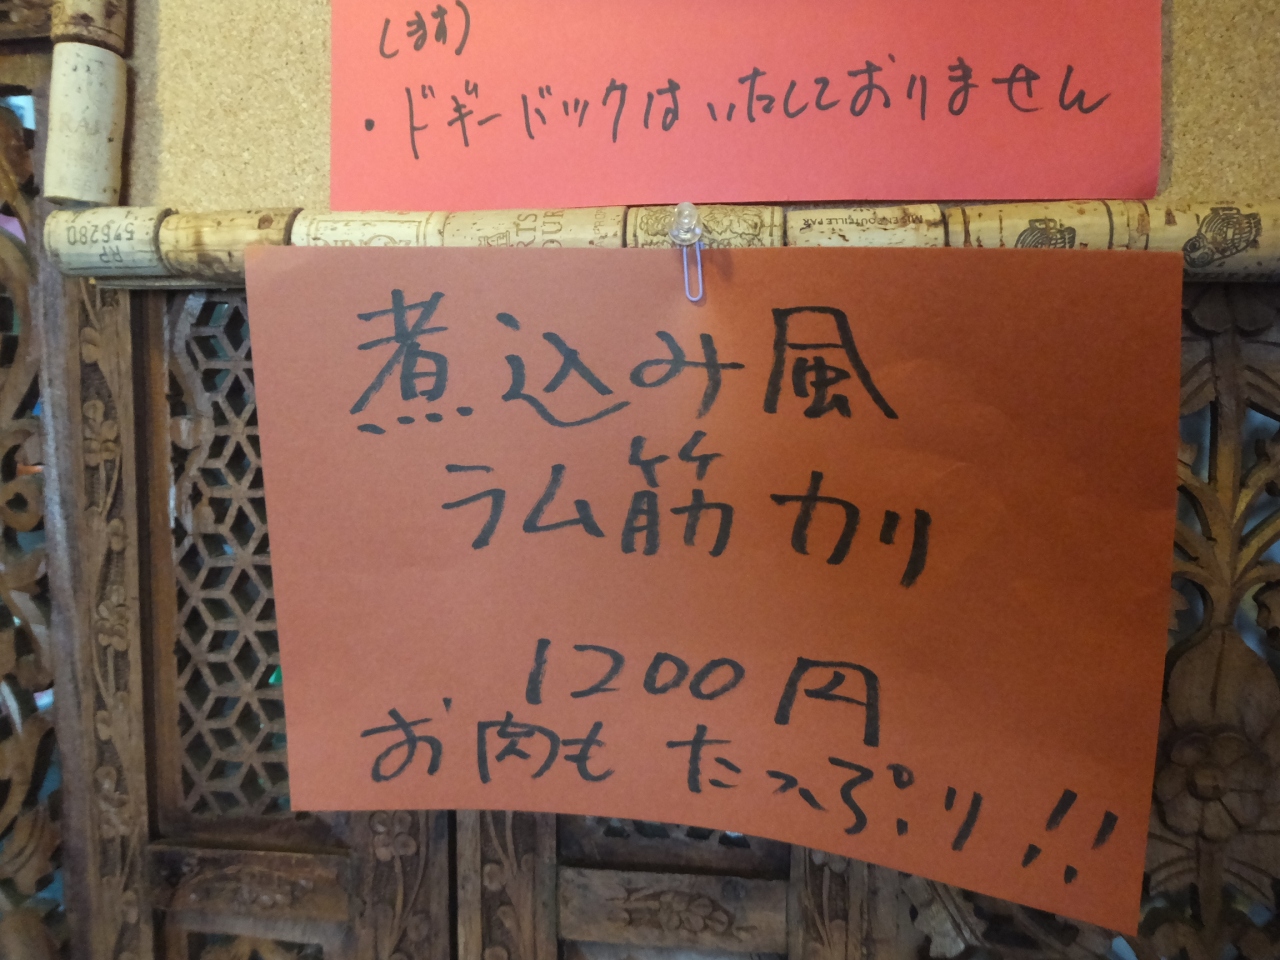 します)
・ドギーバックはいたしておりません
RP 576280
MIS EN BOUTEILLE PAR
煮込み風
ラム筋カリ
1200円
お肉もたっぷり!!